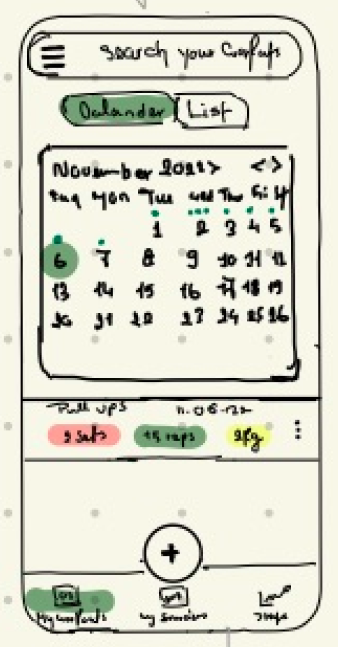 Search your
Calander List
November < >
Mon Tue Wed Thu Fri
1 2 3 4 5
6 7 8 9 10 11 12
13 14 15 16 17 18 19
20 21 22 23 24 25 26
Pull ups 11.06.22
3 sets 15 reps 2kg
+
My workouts my sessions